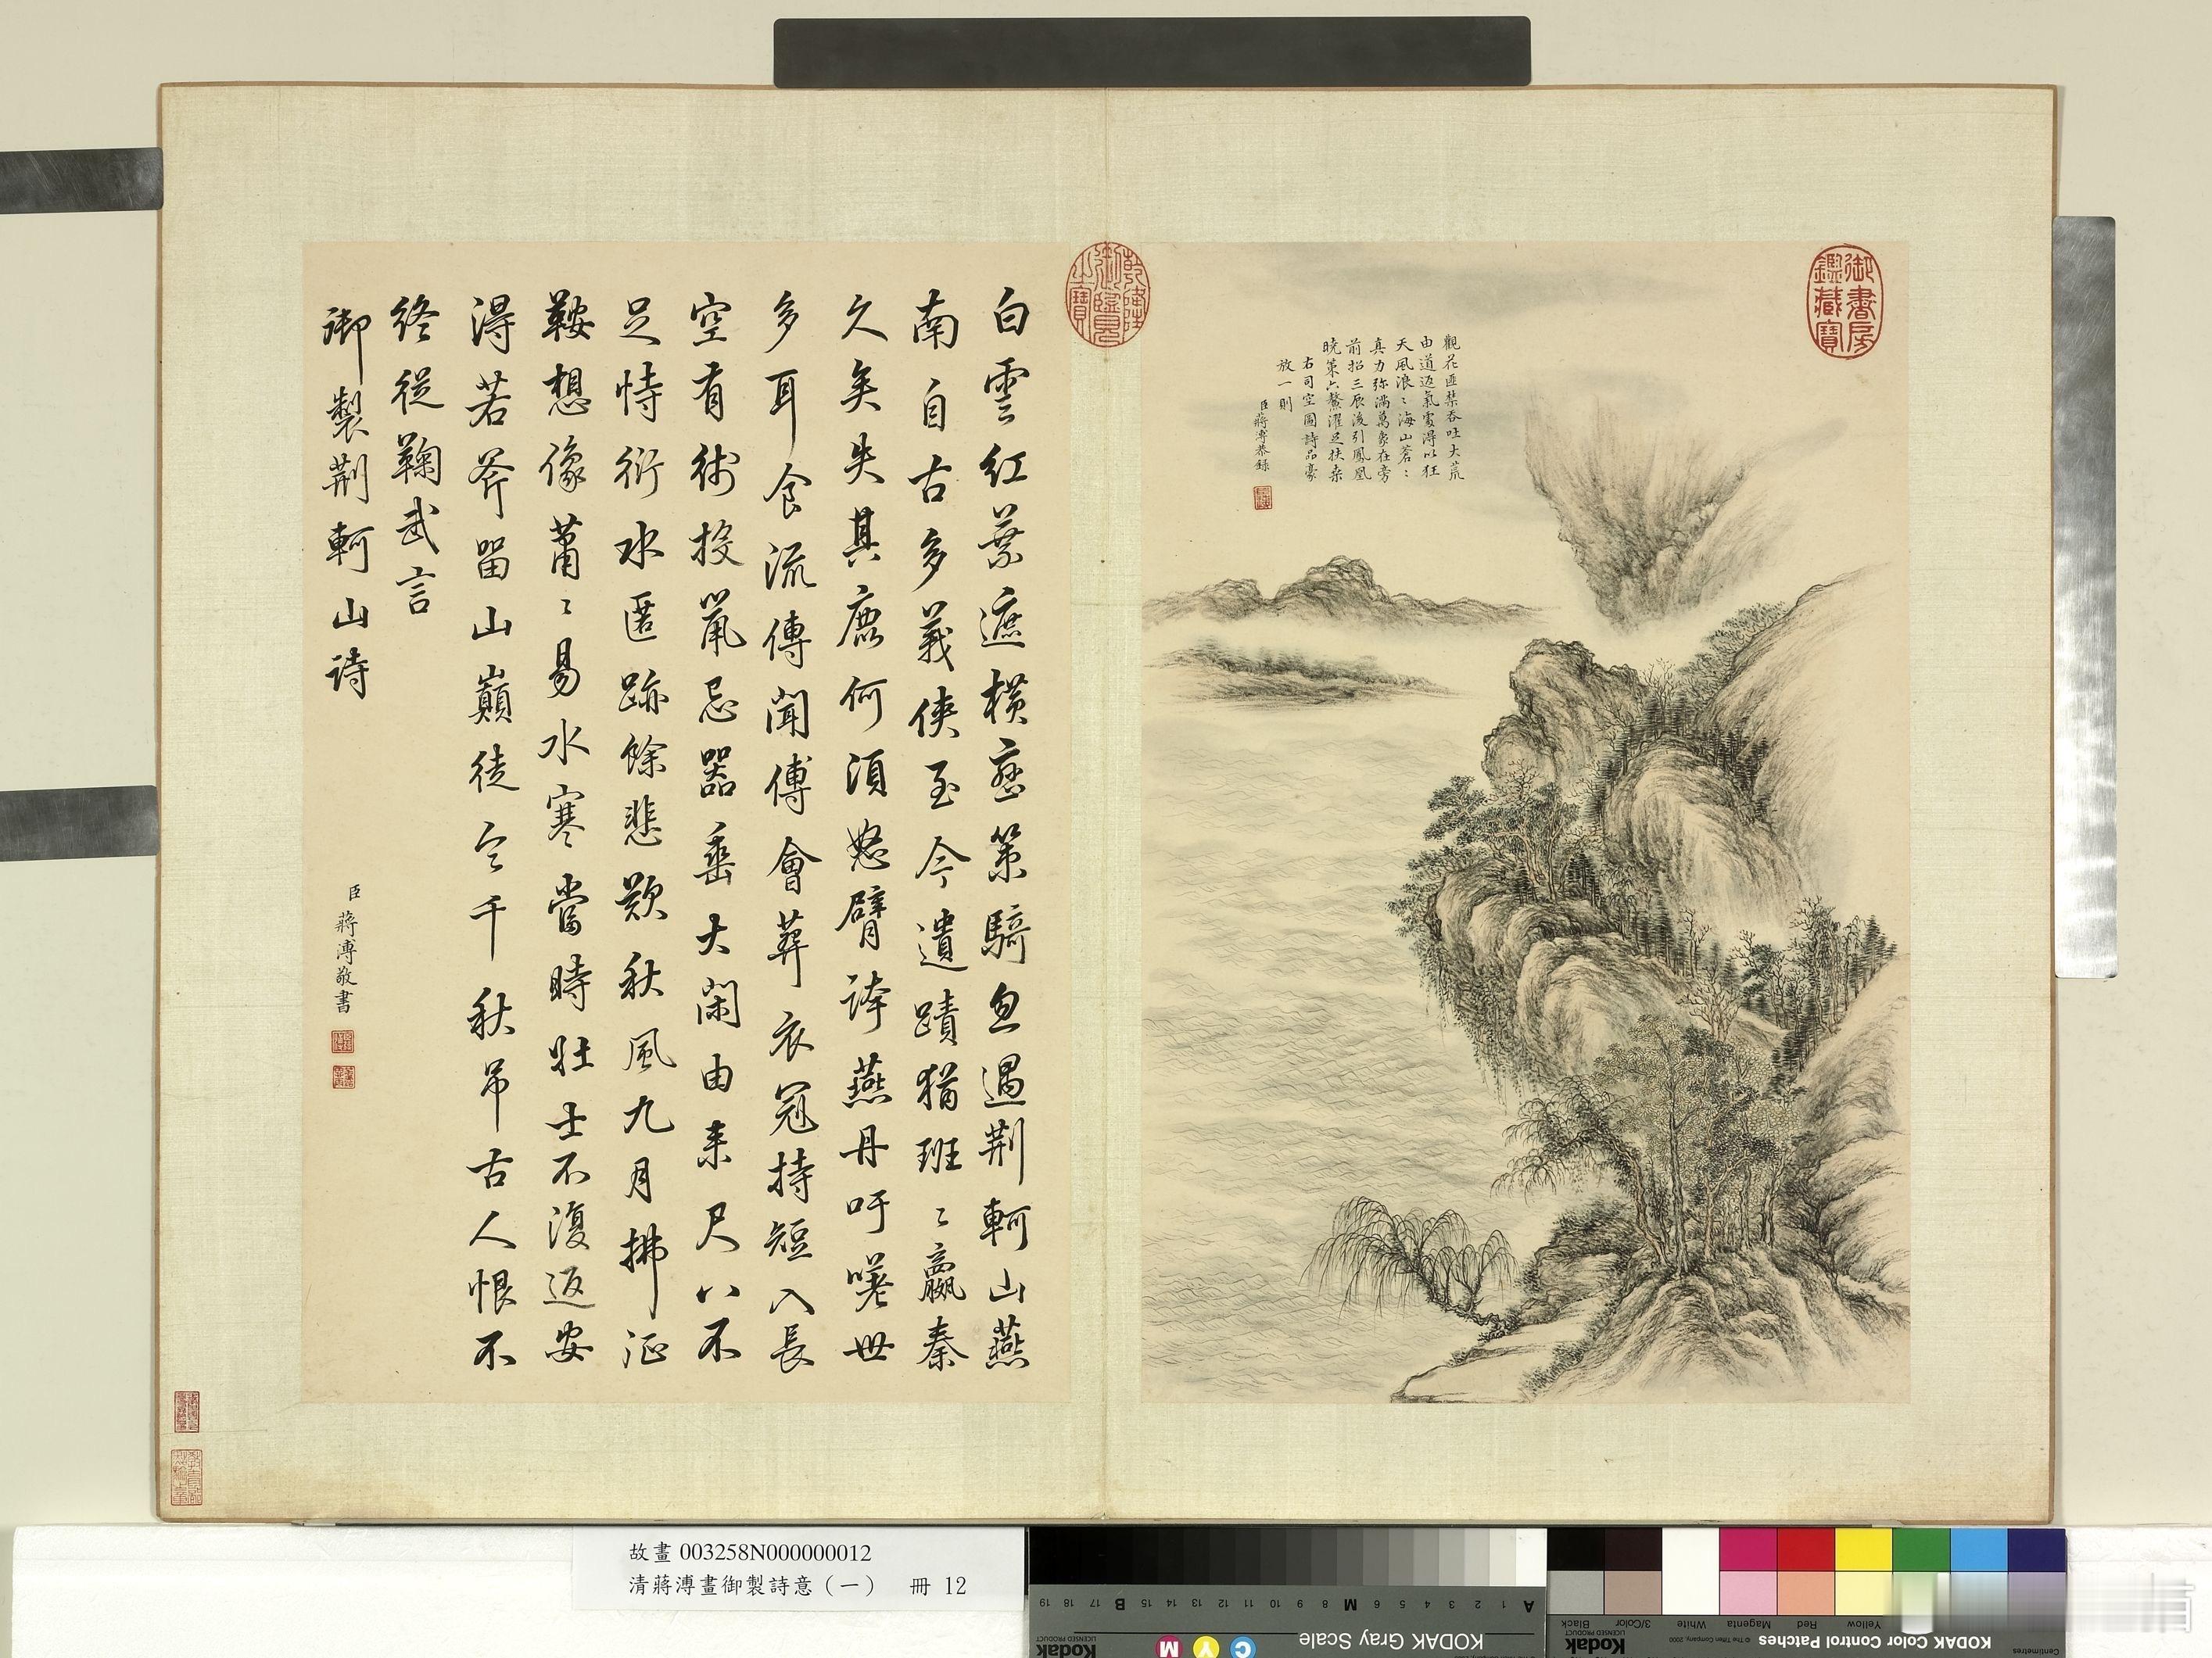 御書房
鑑藏寶
觀花匪禁吞吐大荒
由道返氣處得以狂
天風浪〻海山蒼〻
真力弥滿萬象在旁
前招三辰後引鳳凰
曉策六鰲濯足扶桑
右司空圖詩品豪
放一則
臣蔣溥恭錄
乾隆
御覽
之寶
白雲紅葉遮橫巒策騎忽過荆軻山燕
南自古多義俠至今遺蹟猶班〻嬴秦
久矣失其鹿何須怒臂誇燕丹吁嗟世
多耳食流傳聞傅會葬衣冠持短入長
空有術投鼠忌器垂大閑由来尺八不
足恃衍水匿跡餘悲歎秋風九月拂征
鞍想像蕭〻易水寒當時壯士不復返安
得若斧留山巔徒令千秋吊古人恨不
終從鞠武言
御製荆軻山詩
臣蔣溥敬書
故畫 003258N000000012
清蔣溥畫御製詩意（一） 冊 12
KODAK Gray Scale
Kodak
LICENSED PRODUCT
C Y M
A 1 2 3 4 5 6 M 8 9 10 11 12 13 14 15 B 17 18 19
KODAK Color Control Patches
© The Tiffen Company, 2000
Kodak
LICENSED PRODUCT
Centimetres
Yellow Red Magenta White 3/Color Black